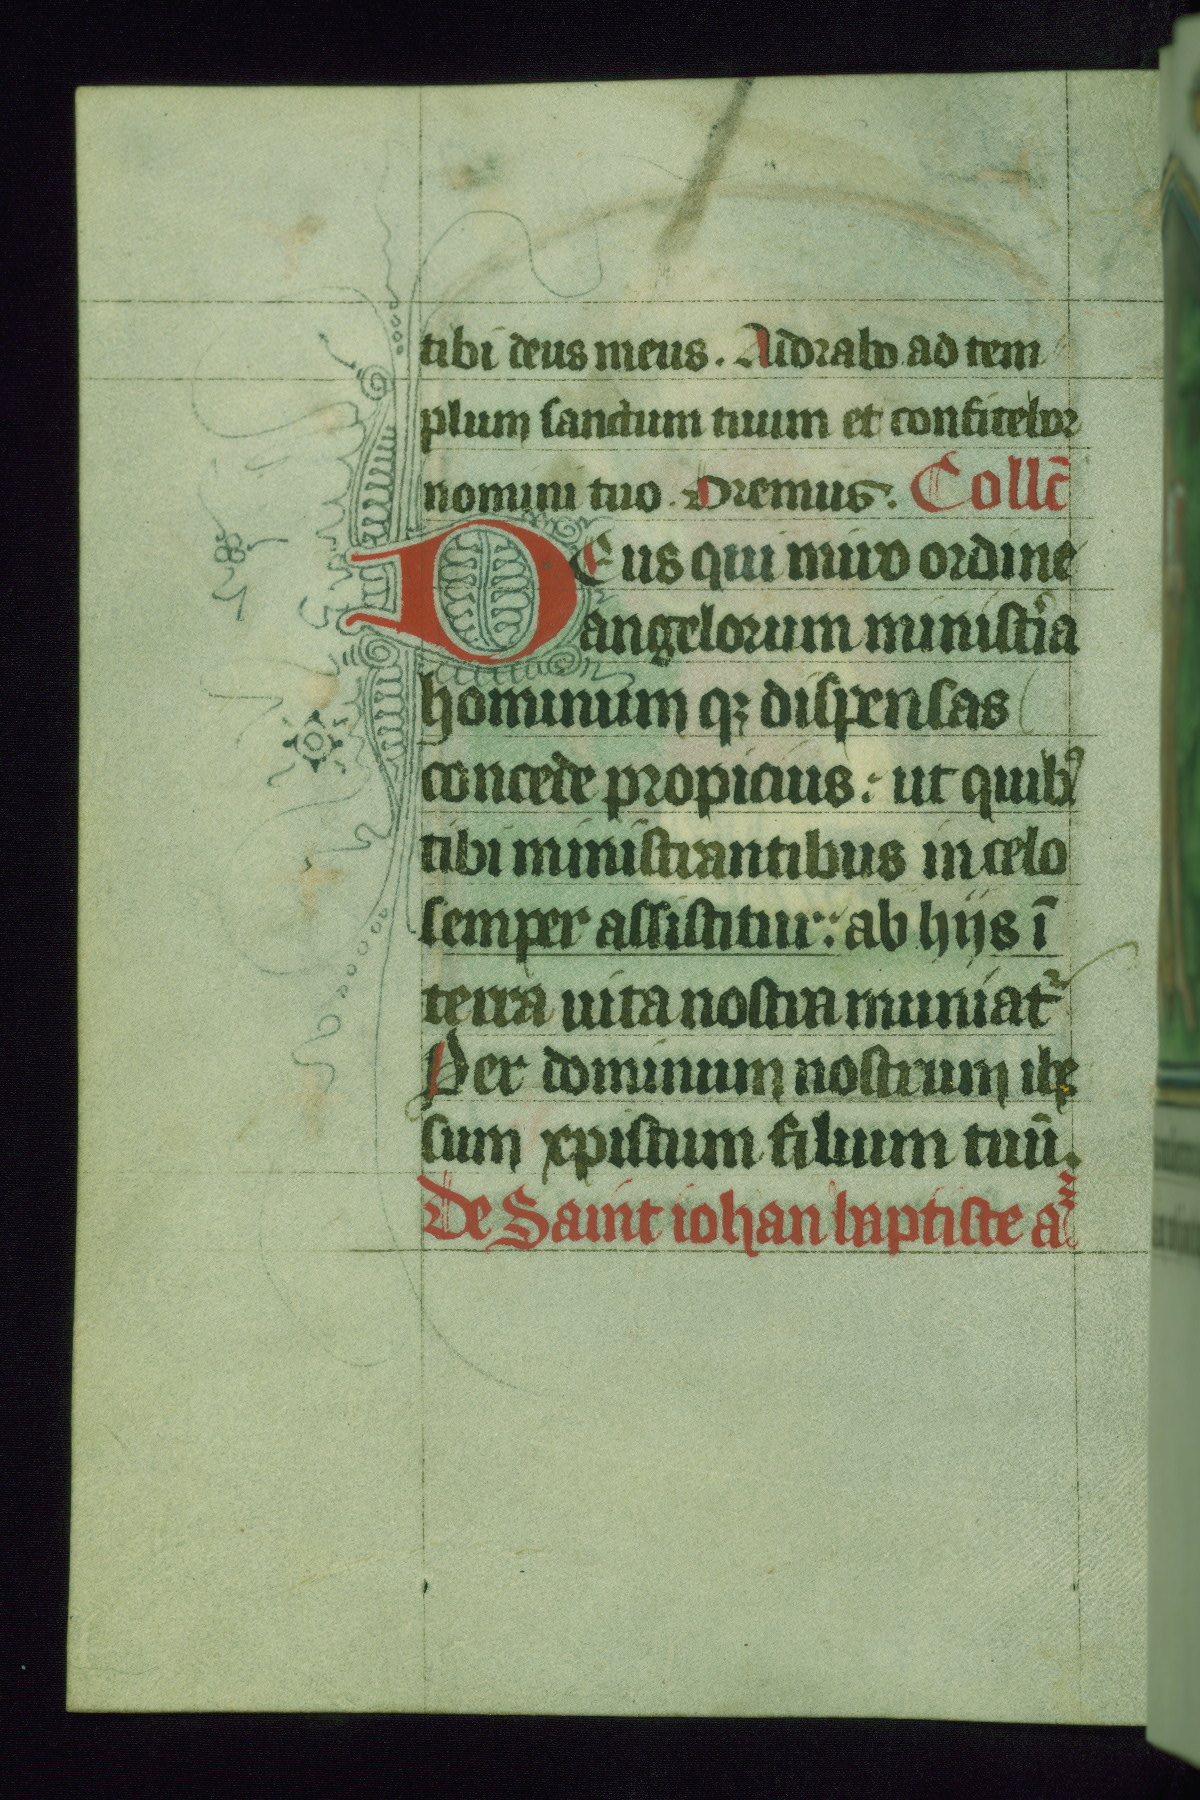 tibi deus meus. Adorabo ad tem
plum sanctum tuum et confitebor
nomini tuo. Oremus. Collc̄
Deus qui miro ordine
angelorum ministia
hominum qꝫ dispensas
concede propicius: ut quibꝰ
tibi ministrantibus in celo
semper assistitur: ab hijs ī
terra uita nostra muniat᷑
Per dominum nostrum ihe
sum xpistum filium tuū.
De Saint iohan baptiste